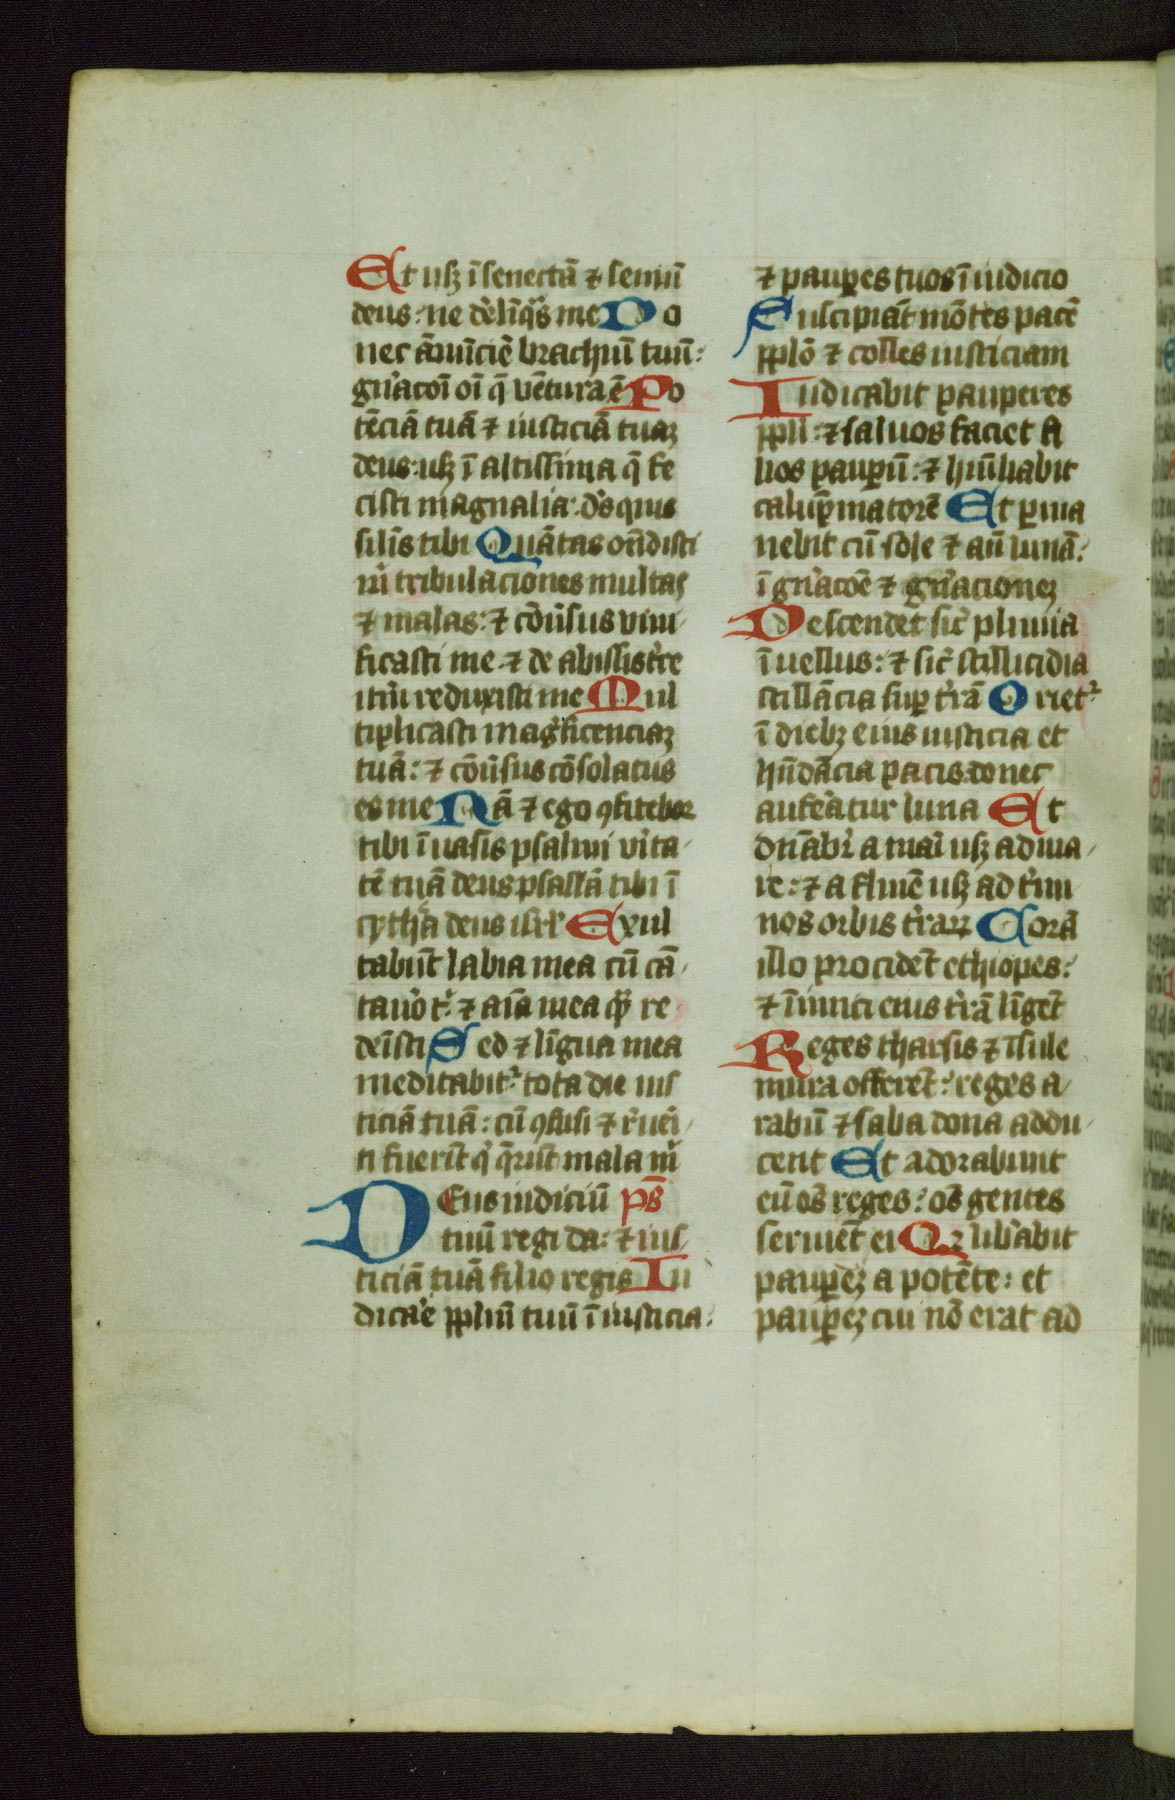 Et usqȝ ī senectā ⁊ seniū
deus: ne dèlīq͛s me Do
nec ānūciē brachiū tuū:
gn̄acōi oī q̄ vētura ē Po
tēciā tuā ⁊ iusticiā tuaȝ
deus: usqȝ ī altissima q̄ fe
cisti magnalia: ds̄ quis
silīs tibi Quātas on̄disti
m̄ tribulaciones multas
⁊ malas: ⁊ cōu͛sus vini
ficasti me ⁊ de abissis tr̄e
itm̄ reduxisti me Mul
tiplicasti mag͛ficenciaȝ
tuā: ⁊ cōu͛sus cōsolatus
es me Nā ⁊ ego ꝯfitebor
tibi ī uasis psalmi vi͛ta
tē tuā deus psallā tibi ī
cyth͛a deus isrl̄ Exul
tabūt labia mea cū cā
tau͛o t͛: ⁊ aīa mea q̄̄ re
deīsti Sed ⁊ līgua mea
meditabit᷑ tota die ius
ticiā tuā: cū ꝯfusi ⁊ r̄ueri
ti fuerīt q͛ q̄rūt mala m͛
Deus iudiciū ps̄
tuū regi da: ⁊ ius
ticiā tuā filio regis Iu
dicar̄e pplm̄ tuū ī iusticia:
⁊ paup̱es tuos ī iudicio
Suscipiāt mōtes pacē
pplō ⁊ colles iusticiam
Iudicabit pauperes
ppli: ⁊ saluos faciet fi
lios paup̱ū: ⁊ hūiliabit
calūpniatorē Et p̱ma
nebit cū sole ⁊ an̄ lunā:
ī gn̄acōe ⁊ gn̄acioneȝ
Descendet sic͛ pluuia
ī uellus: ⁊ sic͛ stillicidia
stillācia sup̱ tr̄ā Oriet᷑
ī diebȝ eius iusticia et
hūdācia pacis donec
aufer̄atur luna Et
dn̄abr̄ a mari usqȝ ad ma
re: ⁊ a flumīe usqȝ ad tr̄mi
nos orbis tr̄arꝝ Corā
illo procidēt ethiopes:
⁊ īimici eius tr̄ā līgēt
Reges tharsis ⁊ īsule
mūra offerēt: reges a
rabū ⁊ saba dona addu
cent Et adorabunt
eū oēs reges: oēs gentes
seruiēt ei Qꝛ lib͛abit
paup̱eȝ a potēte: et
paup̱eȝ cui nō erat ad